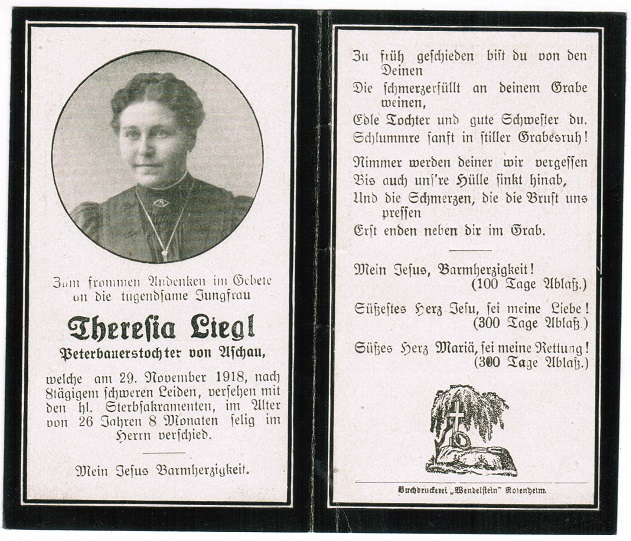 Zum frommen Andenken im Gebete
an die tugendsame Jungfrau
Theresia Liegl
Peterbauerstochter von Aschau,
welche am 29. November 1918, nach
8tägigem schweren Leiden, versehen mit
den hl. Sterbsakramenten, im Alter
von 26 Jahren 8 Monaten selig im
Herrn verschied.
Mein Jesus Barmherzigkeit.
Zu früh geschieden bist du von den
Deinen
Die schmerzerfüllt an deinem Grabe
weinen,
Edle Tochter und gute Schwester du.
Schlummre sanft in stiller Grabesruh!
Nimmer werden deiner wir vergessen
Bis auch uns're Hülle sinkt hinab,
Und die Schmerzen, die die Brust uns
pressen
Erst enden neben dir im Grab.
Mein Jesus, Barmherzigkeit!
(100 Tage Ablaß.)
Süßestes Herz Jesu, sei meine Liebe!
(300 Tage Ablaß.)
Süßes Herz Mariä, sei meine Rettung!
(300 Tage Ablaß.)
Buchdruckerei „Wendelstein" Rosenheim.